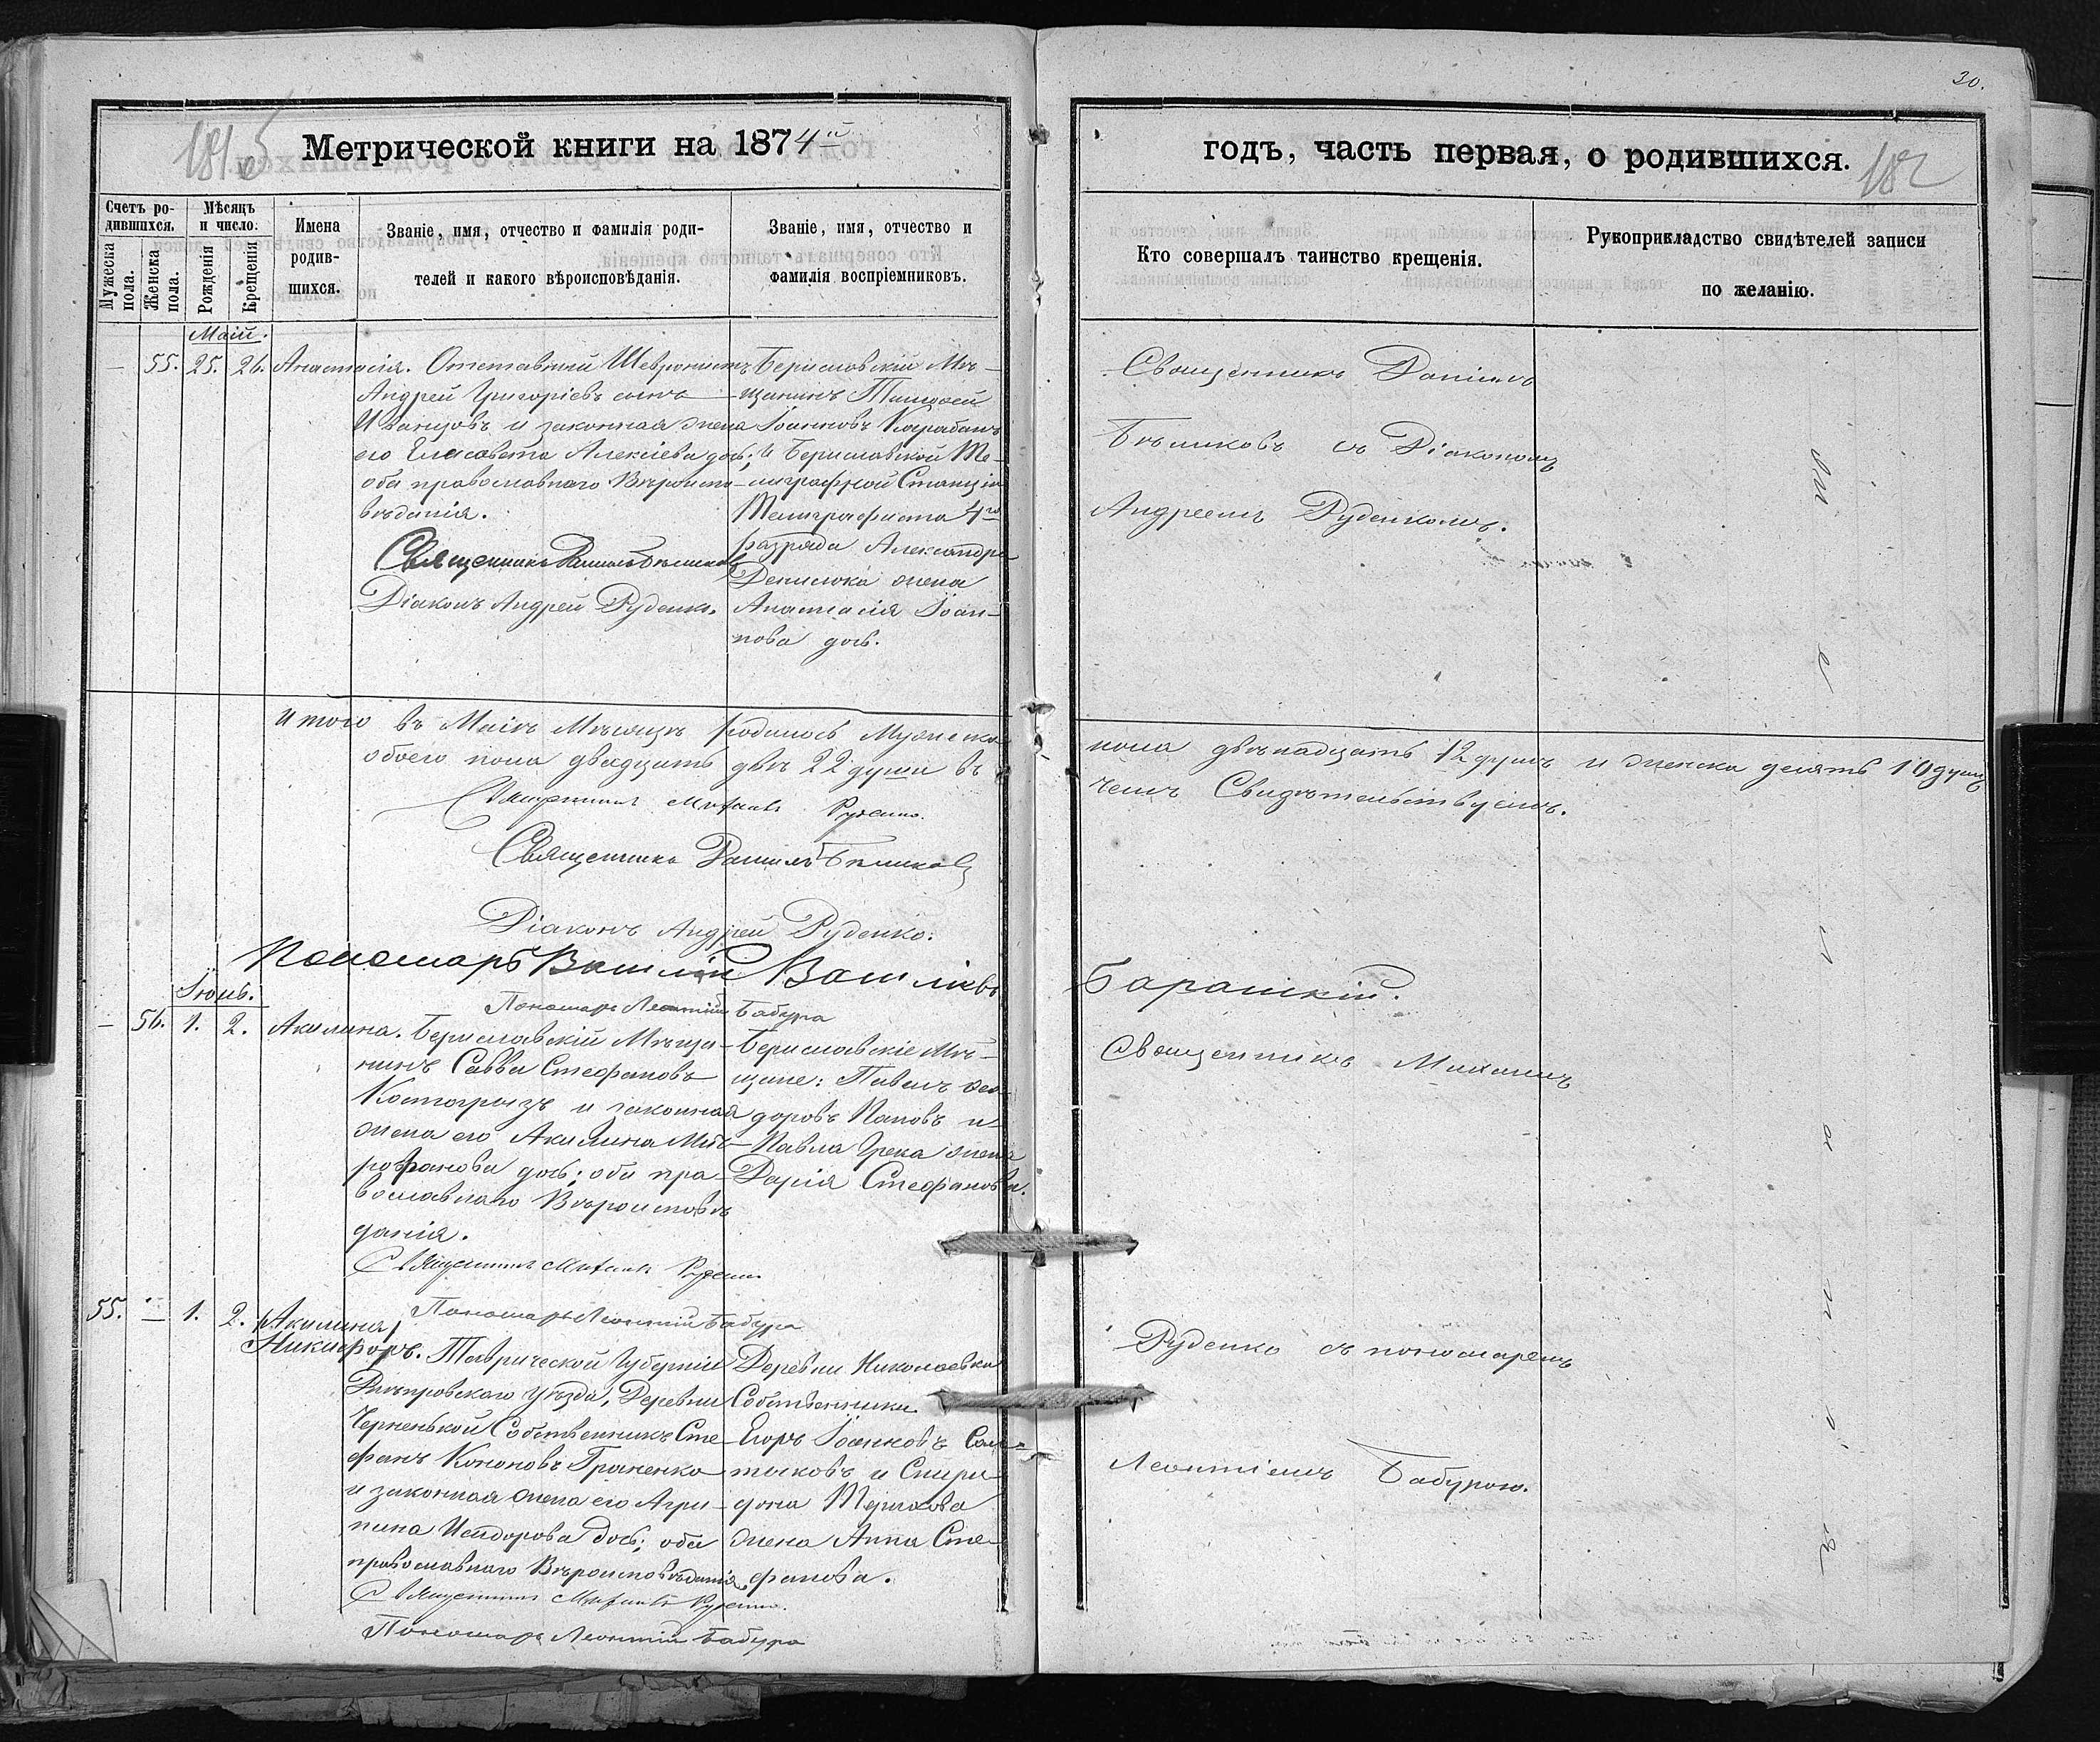 30.
181
Метрической книги на 1874й
годъ, часть первая, о родившихся.
182
Счетъ ро-
дившихся.
Мужеска пола.
Женска пола.
Мѣсяцъ
и число.
Рожденія
Крещенія
Имена
родив-
шихся.
Званіе, имя, отчество и фамилія роди-
телей и какого вѣроисповѣданія.
Званіе, имя, отчество и
фамилія воспріемниковъ.
Кто совершалъ таинство крещенія.
Рукоприкладство свидѣтелей записи
по желанію.
Маій.
— 55. 25. 26. Анастасія.
Отставный Шевронистъ
Андрей Григорієвъ сынъ
Иванцовъ и законная жена
его Елисавета Алексіева дочь;
оба православнаго Вѣроиспо-
вѣданія.
Священникъ Даніилъ Бѣликовъ
Діаконъ Андрей Руденко.
Бериславскій Мѣ-
щанинъ Тимофей
Іоанновъ Карабанъ
и Бериславской Те-
леграфной Станціи
Телеграфиста 4го
разряда Александра
Денисюка жена
Анастасія Іоан-
нова дочь.
Священникъ Даніилъ
Бѣликовъ съ Діакономъ
Андреемъ Руденкомъ.
Итого въ Маіѣ Мѣсяцѣ родилось Мужеска
пола двѣнадцать 12 душъ и женска десять 10 душъ
обоего пола двадцать двѣ 22 души въ
чемъ Свидѣтельствуемъ.
Священникъ Михаилъ Руденко.
Священникъ Даніилъ Бѣликовъ
Діаконъ Андрей Руденко.
Пономарь Василій Васильевъ
Барашкій.
Пономарь Леонтій Бабура
Іюнь.
— 56. 1. 2. Акилина.
Бериславскій Мѣща-
нинъ Савва Стефановъ
Костогрызъ и законная
жена его Акилина Мит-
рофанова дочь; оба пра-
вославнаго Вѣроисповѣ
данія.
Священникъ Михаилъ Руденко
Пономарь Леонтій Бабура
Бериславскіе Мѣ-
щане: Павелъ Ѳео-
доровъ Поповъ и
Павла Грека жена
Дарія Стефанова.
Священникъ Михаилъ
55. — 1. 2. Акилина
Никифоръ.
Таврической Губерніи
Днѣпровскаго уѣзда, Деревни
Черненькой Собственникъ Сте-
фанъ Кононовъ Граненко
и законная жена его Агри-
пина Исидорова дочь; оба
православнаго Вѣроисповѣданія
Священникъ Михаилъ Руденко.
Пономарь Леонтій Бабура
Деревни Николаевки
Собственники
Егоръ Іоанновъ Сал-
тыковъ и Спири-
дона
жена Анна Сте-
фанова.
Руденко съ пономаремъ
Леонтіемъ Бабурою.